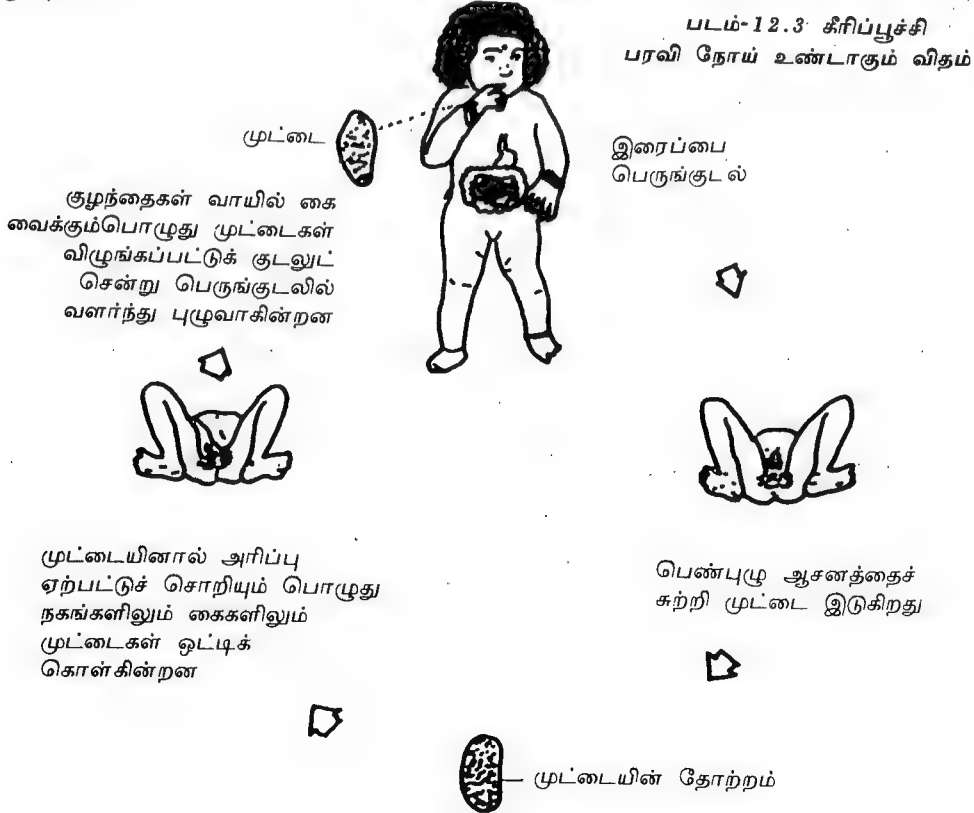 படம்-12.3 கீரிப்பூச்சி
பரவி நோய் உண்டாகும் விதம்
முட்டை
இரைப்பை
பெருங்குடல்
குழந்தைகள் வாயில் கை
வைக்கும்பொழுது முட்டைகள்
விழுங்கப்பட்டுக் குடலுட்
சென்று பெருங்குடலில்
வளர்ந்து புழுவாகின்றன
முட்டையினால் அரிப்பு
ஏற்பட்டுச் சொறியும் பொழுது
நகங்களிலும் கைகளிலும்
முட்டைகள் ஒட்டிக்
கொள்கின்றன
பெண்புழு ஆசனத்தைச்
சுற்றி முட்டை இடுகிறது
முட்டையின் தோற்றம்